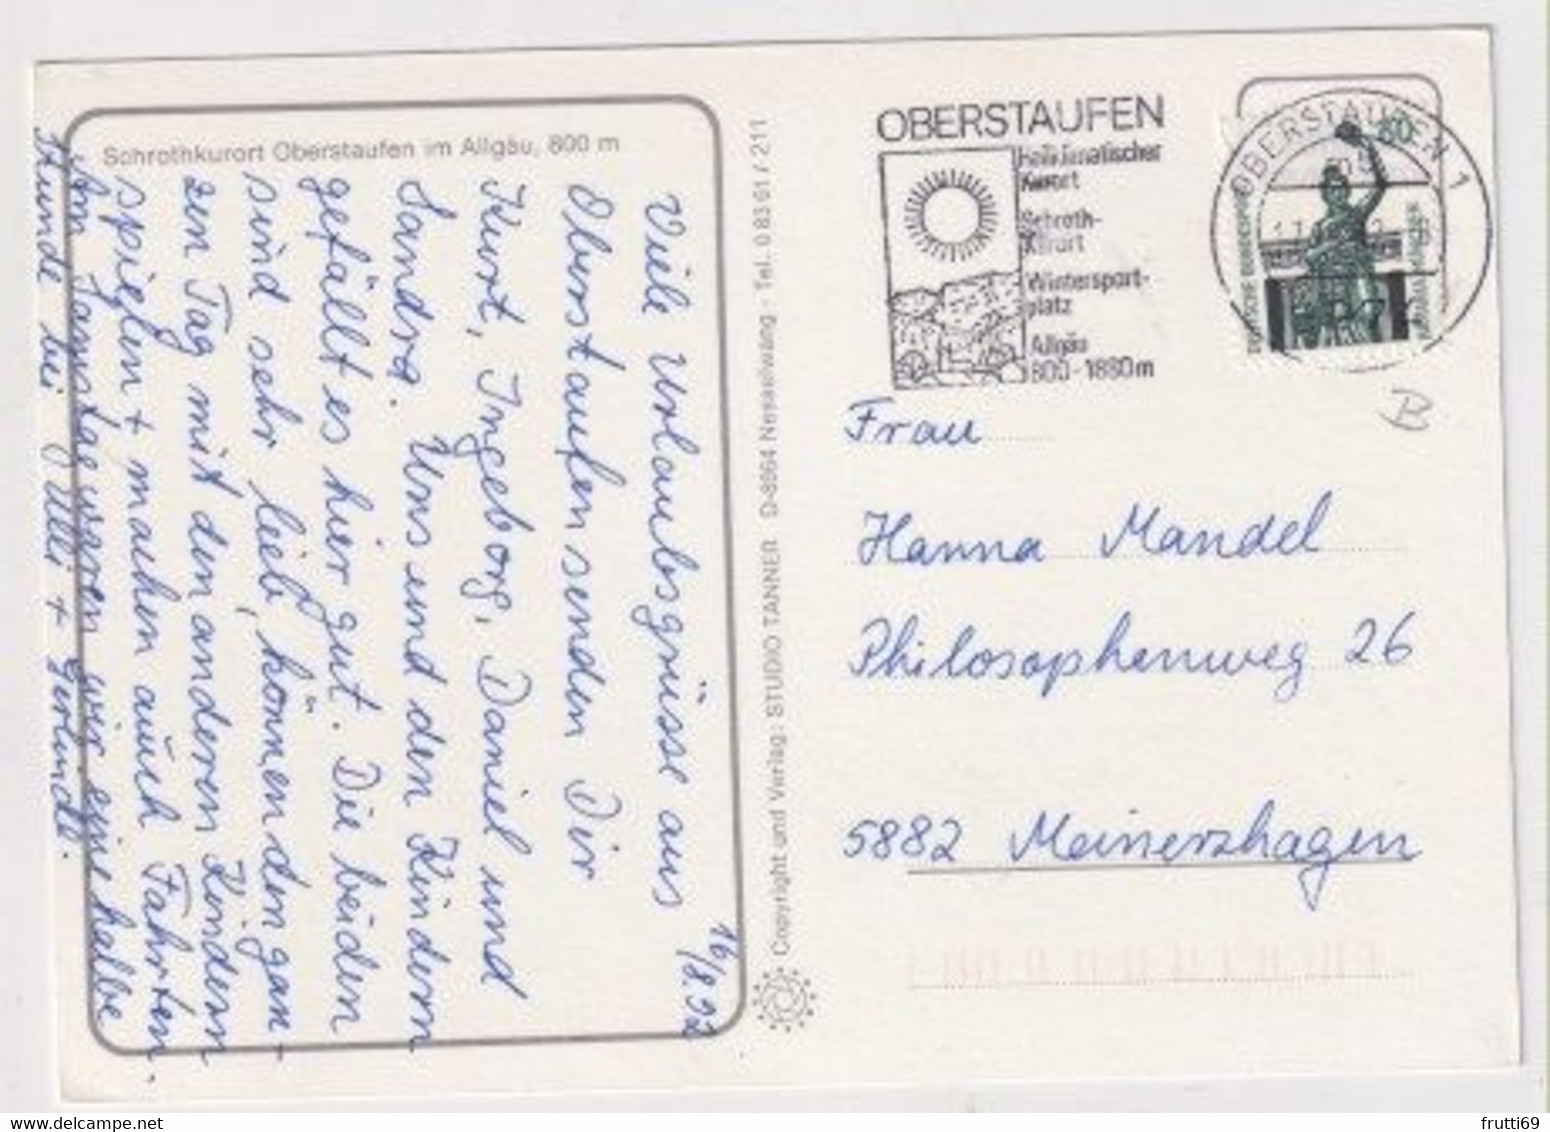 Schrothkurort Oberstaufen im Allgäu, 800 m
16/8.92
Viele Urlaubsgrüsse aus
Oberstaufen senden Dir
Kurt, Ingeborg, Daniel und
Sandra. Uns und den Kindern
gefällt es hier gut. Die beiden
sind sehr lieb, können den gan-
zen Tag mit den anderen Kindern
spielen + machen auch Fahrten.
Am Samstag waren wir eine halbe
Stunde bei Ulli + Gerlinde.
Copyright und Verlag: STUDIO TANNER D-8964 Nesselwang - Tel. 0 83 61 / 211
OBERSTAUFEN
Heilklimatischer
Kurort
Schroth-
Kurort
Wintersport-
platz
Allgäu
800-1880m
OBERSTAUFEN 1
60
DEUTSCHE BUNDESPOST
Frau
Hanna Mandel
Philosophenweg 26
5882 Meinerzhagen
B
frutti69